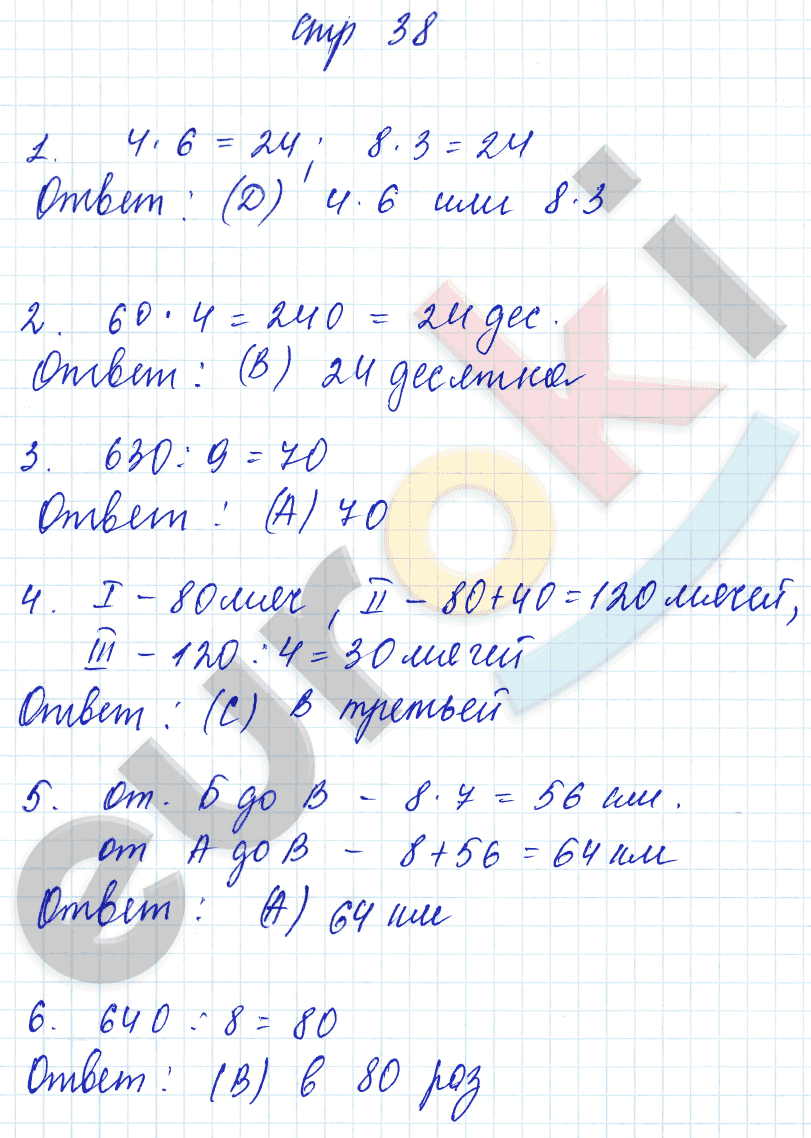 стр 38
1. 4·6 = 24; 8·3 = 24
Ответ: (D) 4·6 или 8·3
2. 60·4 = 240 = 24 дес.
Ответ: (В) 24 десятка
3. 630:9 = 70
Ответ: (А) 70
4. I – 80 мяч, II – 80+40=120 мячей,
III – 120:4 = 30 мячей
Ответ: (С) в третьей
5. от. Б до В – 8·7 = 56 км.
от А до В – 8+56 = 64 км
Ответ: (А) 64 км
6. 640:8 = 80
Ответ: (В) в 80 раз
euroki